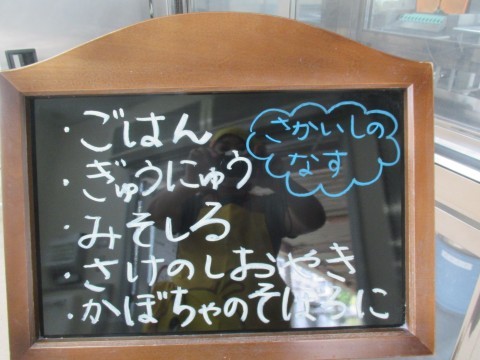 ・ごはん
・ぎゅうにゅう
・みそしる
・さけのしおやき
・かぼちゃのそぼろに
さかいしの
なす